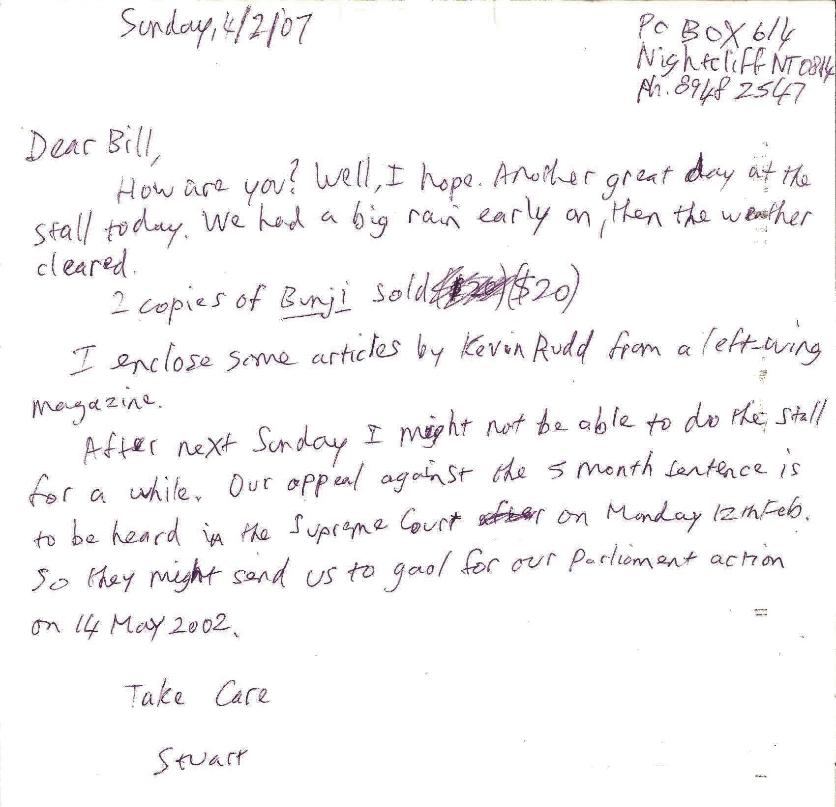 Sunday, 4/2/07
PO BOX 614
Nightcliff NT 0814
Ph. 8948 2547
Dear Bill,
How are you? Well, I hope. Another great day at the
stall today. We had a big rain early on, then the weather
cleared.
2 copies of Bunji sold ($20) ($20)
I enclose some articles by Kevin Rudd from a left-wing
magazine.
After next Sunday I might not be able to do the stall
for a while. Our appeal against the 5 month sentence is
to be heard in the Supreme Court after on Monday 12th Feb.
So they might send us to gaol for our Parliament action
on 14 May 2002.
Take Care
Stuart